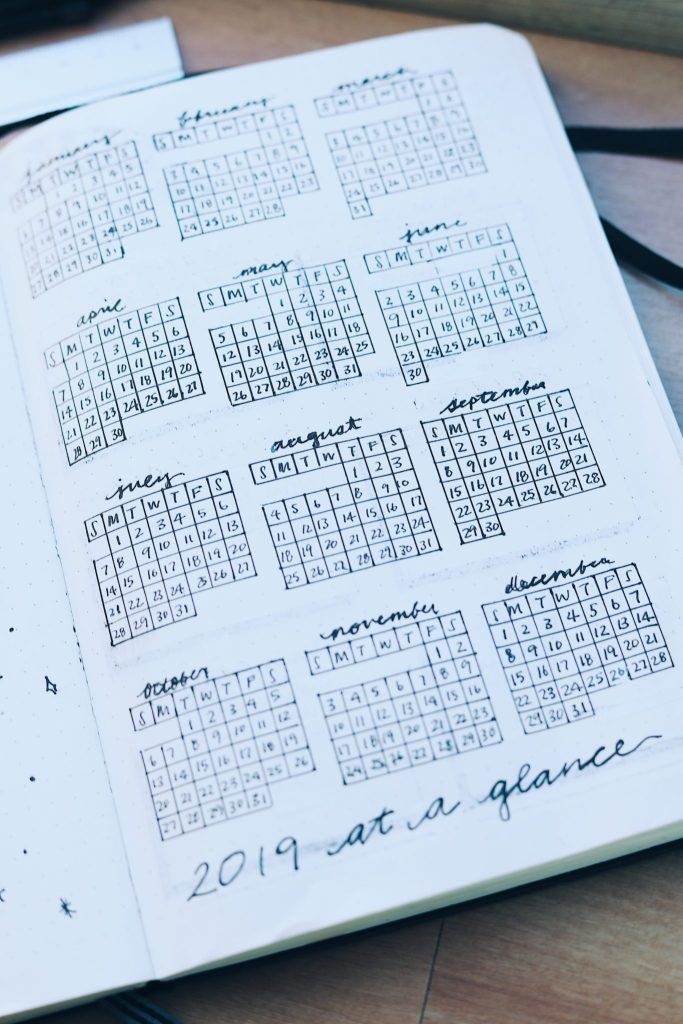 january
S M T W T F S
1 2 3 4 5
6 7 8 9 10 11 12
13 14 15 16 17 18 19
20 21 22 23 24 25 26
27 28 29 30 31
february
S M T W T F S
1 2
3 4 5 6 7 8 9
10 11 12 13 14 15 16
17 18 19 20 21 22 23
24 25 26 27 28
march
S M T W T F S
1 2
3 4 5 6 7 8 9
10 11 12 13 14 15 16
17 18 19 20 21 22 23
24 25 26 27 28 29 30
31
april
S M T W T F S
1 2 3 4 5 6
7 8 9 10 11 12 13
14 15 16 17 18 19 20
21 22 23 24 25 26 27
28 29 30
may
S M T W T F S
1 2 3 4
5 6 7 8 9 10 11
12 13 14 15 16 17 18
19 20 21 22 23 24 25
26 27 28 29 30 31
june
S M T W T F S
1
2 3 4 5 6 7 8
9 10 11 12 13 14 15
16 17 18 19 20 21 22
23 24 25 26 27 28 29
30
july
S M T W T F S
1 2 3 4 5 6
7 8 9 10 11 12 13
14 15 16 17 18 19 20
21 22 23 24 25 26 27
28 29 30 31
august
S M T W T F S
1 2 3
4 5 6 7 8 9 10
11 12 13 14 15 16 17
18 19 20 21 22 23 24
25 26 27 28 29 30 31
september
S M T W T F S
1 2 3 4 5 6 7
8 9 10 11 12 13 14
15 16 17 18 19 20 21
22 23 24 25 26 27 28
29 30
october
S M T W T F S
1 2 3 4 5
6 7 8 9 10 11 12
13 14 15 16 17 18 19
20 21 22 23 24 25 26
27 28 29 30 31
november
S M T W T F S
1 2
3 4 5 6 7 8 9
10 11 12 13 14 15 16
17 18 19 20 21 22 23
24 25 26 27 28 29 30
december
S M T W T F S
1 2 3 4 5 6 7
8 9 10 11 12 13 14
15 16 17 18 19 20 21
22 23 24 25 26 27 28
29 30 31
2019 at a glance